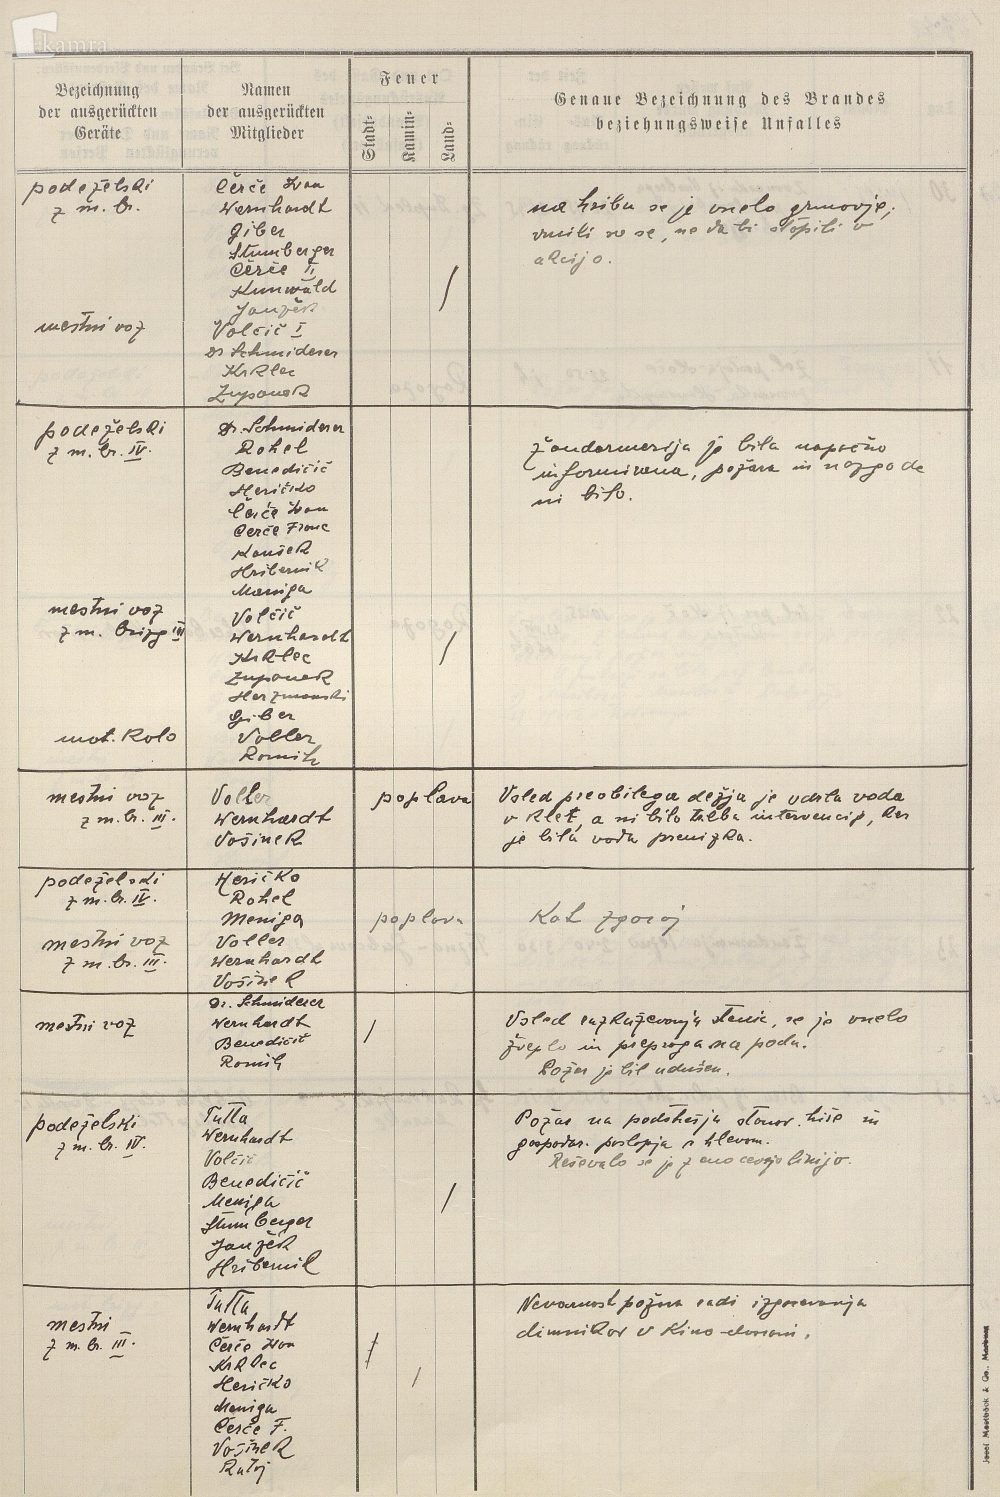 kamra
Bezeichnung
der ausgerückten
Geräte
Namen
der ausgerückten
Mitglieder
Feuer
Stadt-
Kamin-
Land-
Genaue Bezeichnung des Brandes
beziehungsweise Unfalles
podeželski
z m. br.
Čerče Ivan
Wernhardt
Giber
Stumberger
Čerče II
Kunwald
Janžek
mestni voz
Volčič I
Dr Schmiderer
Krklec
Zupanek
/
na hribu se je vnelo grmovje,
vrnili so se, ne da bi stopili v
akcijo.
podeželski
z m. br. IV.
Dr. Schmiderer
Rohel
Benedičič
Heričko
Čerče Ivan
Čerče Franc
Kaušek
Hribernik
Meniga
mestni voz
z m. brizg III
Volčič
Wernhardt
Krklec
Zupanek
Herzmanski
Giber
mot. kolo
Voller
Romih
/
Žandarmerija je bila napačno
informirana, požara in nezgode
ni bilo.
mestni voz
z m. br. III.
Voller
Wernhardt
Vošinek
poplava
Vsled preobilega dežja je vdrla voda
v klet, a ni bilo treba intervencije, ker
je bila voda prenizka.
podeželski
z m. br. IV.
Heričko
Rohel
Meniga
mestni voz
z m. br. III.
Voller
Wernhardt
Vošinek
poplava
Kot zgoraj
mestni voz
Dr. Schmiderer
Wernhardt
Benedičič
Romih
/
Vsled razkuževanja stenic, se je vnelo
žveplo in preproga na podu.
Požar je bil udušen.
podeželski
z m. br. IV.
Tutta
Wernhardt
Volčič
Benedičič
Meniga
Stumberger
Janžek
Hribernik
/
Požar na podstrešju stanov. hiše in
gospodar. poslopja s hlevom.
Reševalo se je z eno cevjo linijo.
mestni
z m. br. III.
Tutta
Wernhardt
Čerče Ivan
Krklec
Heričko
Meniga
Čerče F.
Vošinek
/
/
Nevarnost požara radi izgorevanja
dimnikov v Kino-dvorani.